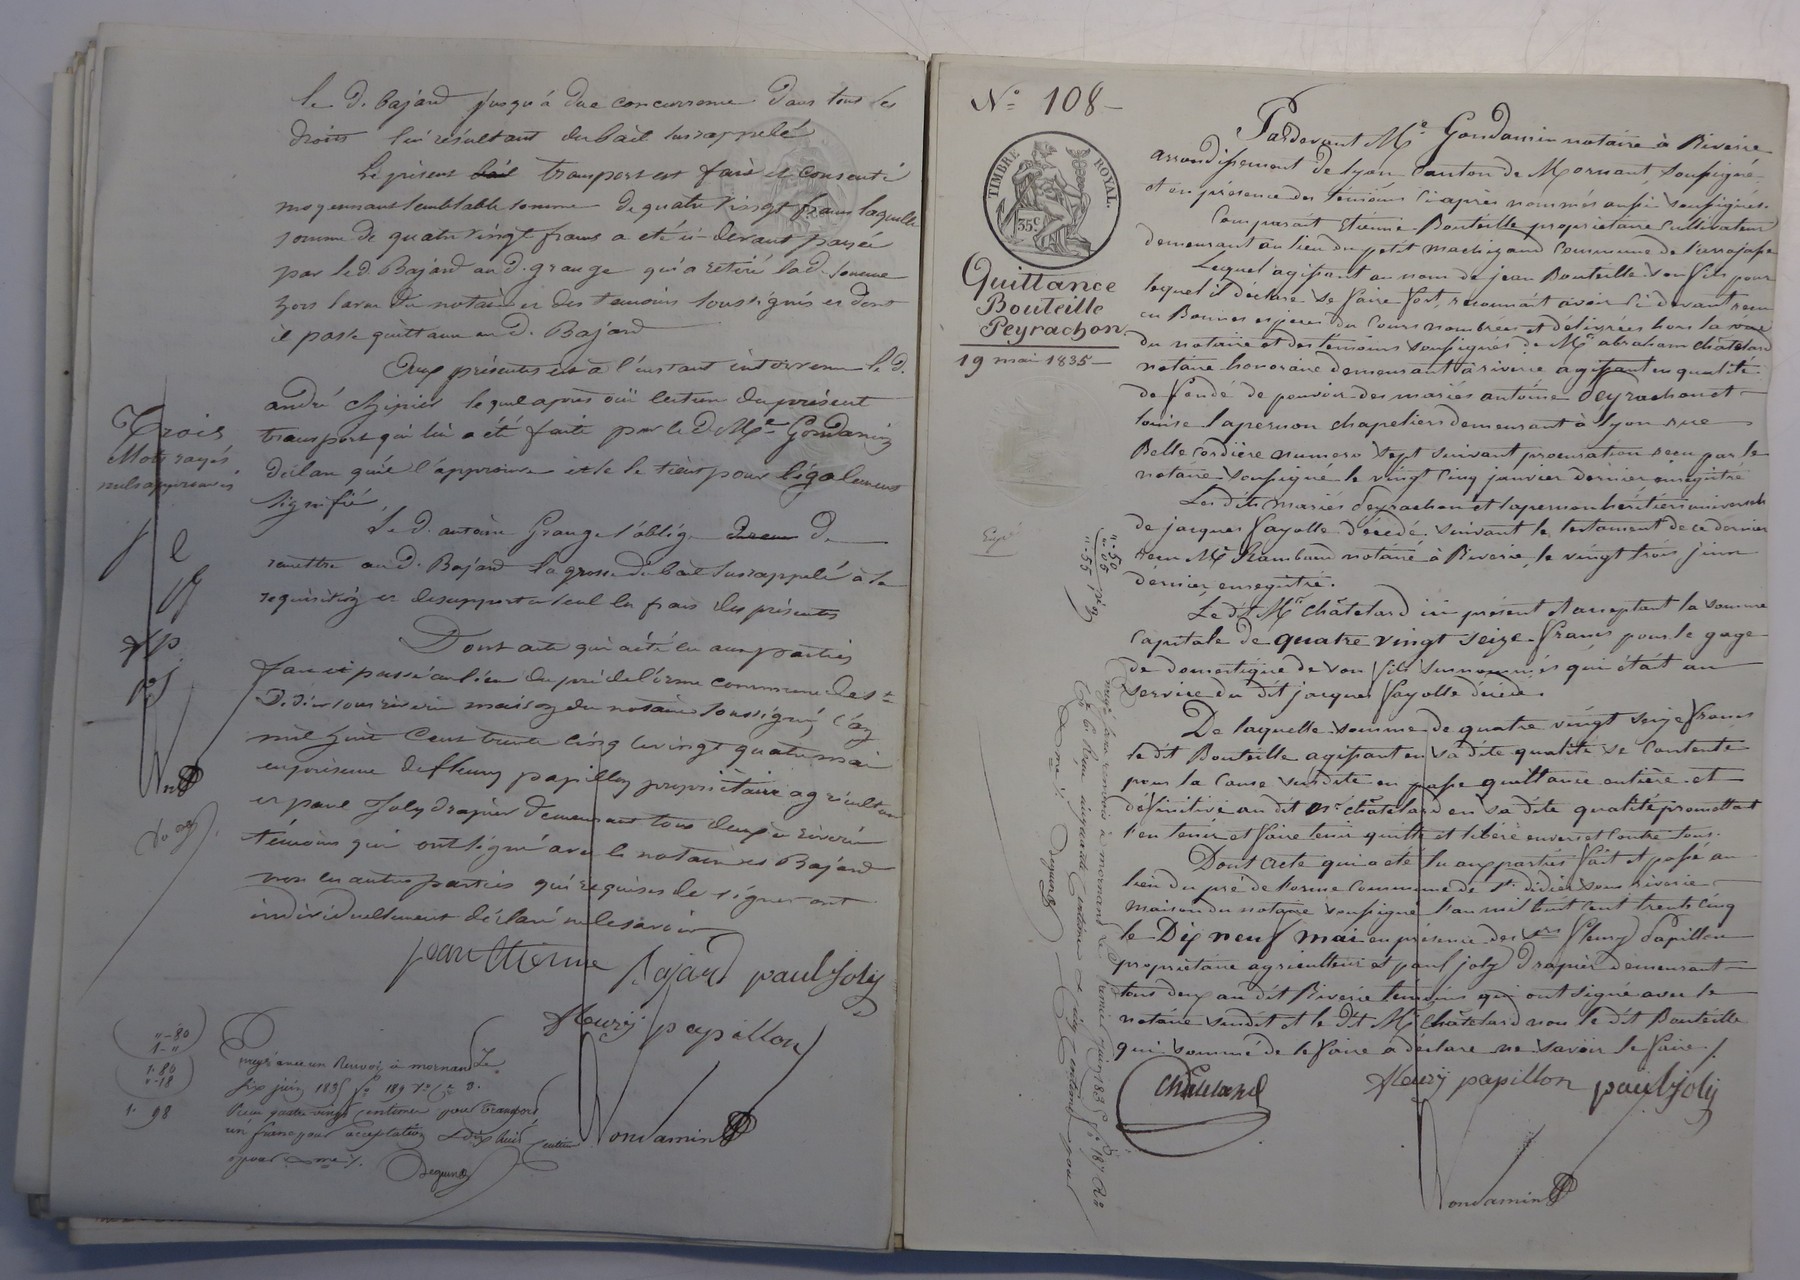 le d. Bajard jusqu'à due concurrence dans tous les
droits lui résultant du bail susrappelé
Le présent bail transport est fait et consenti
moyennant semblable somme de quatre vingt francs laquelle
somme de quatre vingt francs a été ci-devant payée
par le d Bajard au d. grange qui a retiré lad. somme
hors la vue du notaire et des temoins soussignés et dont
il passe quittance au d. Bajard
Aux présentes est à l'instant intervenu le d.
andré lequel après ouï lecture du présent
transport qui lui a été faite par le d Me Gondamin
déclare qu'il l'approuve et se le tient pour légalement
signifié
Le d. antoine Grange s'oblige de
remettre au d. Bajard la grosse du bail susrappelé à sa
requisition et desupporter seul les frais des présentes
Dont acte qui a été lu aux parties
fait et passé au lieu du pré de l'orme commune de st
Didier sous riverie maison du notaire soussigné, l'an
mil huit cent trente cinq le vingt quatre mai
en présence de fleury papillon propriétaire agriculteur
et paul Joly drapier demeurant tous deux à riverie
témoins qui ont signé avec le notaire et Bajard
non les autres parties qui requises de signer ont
individuellement déclaré ne le savoir
Trois
Mots rayés
nuls approuvés
Bajard paul Joly
fleury papillon
Gondamin
"-80
1-"
1.80
"-18
1. 98
Enregistré un Renvoi, à mornant le
six juin 1835 fo 189 Vo Ce 3.
Reçu quatre vingt centimes pour transport
un franc pour acceptation & dix huit centimes
pour
N° 108
TIMBRE ROYAL.
35c
Quittance
Bouteille
Peyrachon
19 mai 1835
Expé
".50
".05
".55
Pardevant Me Gondamin notaire à Riverie
arrondissement de Lyon Canton de Mornant, soussigné
et en présence des témoins ci après nommés aussi soussignés.
Comparait Etienne Bouteille propriétaire cultivateur
demeurant au lieu du petit machigand commune de Larajasse
Lequel agissant au nom de jean Bouteille son fils pour
lequel il déclare se faire fort, reconnait avoir ci devant reçu
en Bonnes espèces du Cours nombrées et délivrées hors la vue
du notaire et des témoins soussignés de Me abraham châtelard
notaire honoraire demeurant à riverie agissant en qualité
de fondé de pouvoir des mariés antoine Peyrachon et
louise lapersson chapeliers demeurant à lyon rue
Belle cordière numero sept suivant procuration reçue par le
notaire soussigné le vingt cinq janvier dernier enregistré
Les dits mariés Peyrachon et laperson héritiers universels
de jacques fayolle décédé suivant le testament de ce dernier
reçu Me Rambaud notaire à Riverie, le vingt trois juin
dernier, enregistré.
Le dit Me Châtelard ici présent et acceptant la somme
Capitale de quatre vingt seize francs pour le gage
de domestique de son fils surnommé qui était au
service du dit jacques fayolle décédé.
De laquelle somme de quatre vingt seize francs
le dit Bouteille agissant en sa dite qualité se contente
pour la Cause susdite en passe quittance entière et
définitive au dit Me châtelard en sa dite qualité promettant
l'en tenir et faire tenir quitte et libéré envers et contre tous.
Dont Acte qui a été lu aux parties fait et passé au
lieu du pré de lorme commune de St. didier sous riverie
maison du notaire soussigné l'an mil huit cent trente cinq
le Dix neuf mai en présence des srs fleury Papillon
propriétaire agriculteur et paul joly drapier demeurant
tous deux au dit Riverie temoins qui ont signé avec le
notaire susdit et le dit Me Châtelard non le dit Bouteille
qui sommé de le faire a déclaré ne savoir le faire.
Châtelard fleury papillon paul Joly
Gondamin
Enregistré sans renvoi à mornant le premier juin 1835 fo 187 Ro
Ce 6 Reçu cinquante centimes & cinq centimes pour